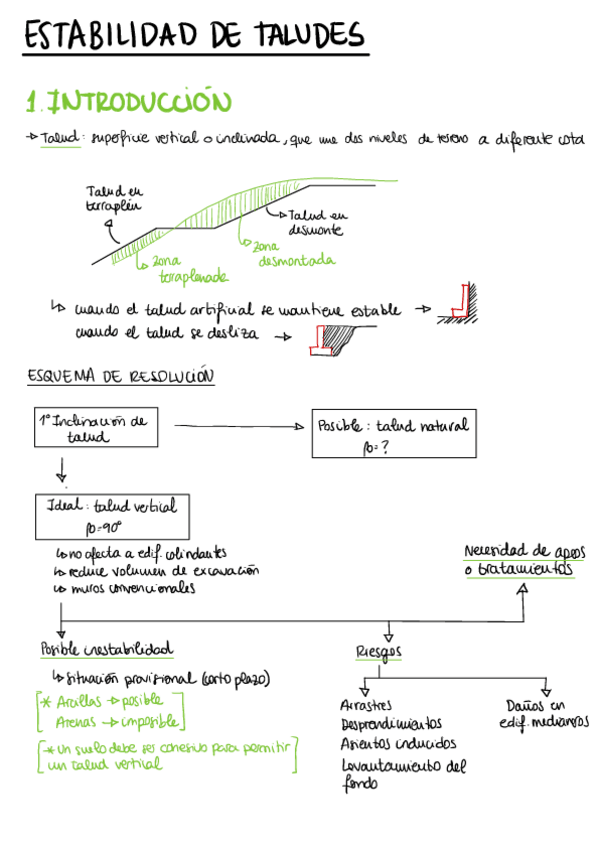 ESTABILIDAD DE TALUDES
1. INTRODUCCIÓN
→ Talud: superficie vertical o inclinada, que une dos niveles de terreno a diferente cota
Talud en
terraplén
Talud en
desmonte
zona
terraplenada
zona
desmontada
↳ cuando el talud artificial se mantiene estable →
cuando el talud se desliza →
ESQUEMA DE RESOLUCIÓN
1º Inclinación de
talud
Posible: talud natural
β=?
Ideal: talud vertical
β=90°
↳ no afecta a edif. colindantes
↳ reduce volumen de excavación
↳ muros convencionales
Necesidad de apeos
o tratamientos
Posible inestabilidad
↳ situación provisional (corto plazo)
[* Arcillas → posible
Arenas → imposible]
[* un suelo debe ser cohesivo para permitir
un talud vertical]
Riesgos
Arrastres
Desprendimientos
Asientos inducidos
Levantamiento del
fondo
Daños en
edif. medianeros